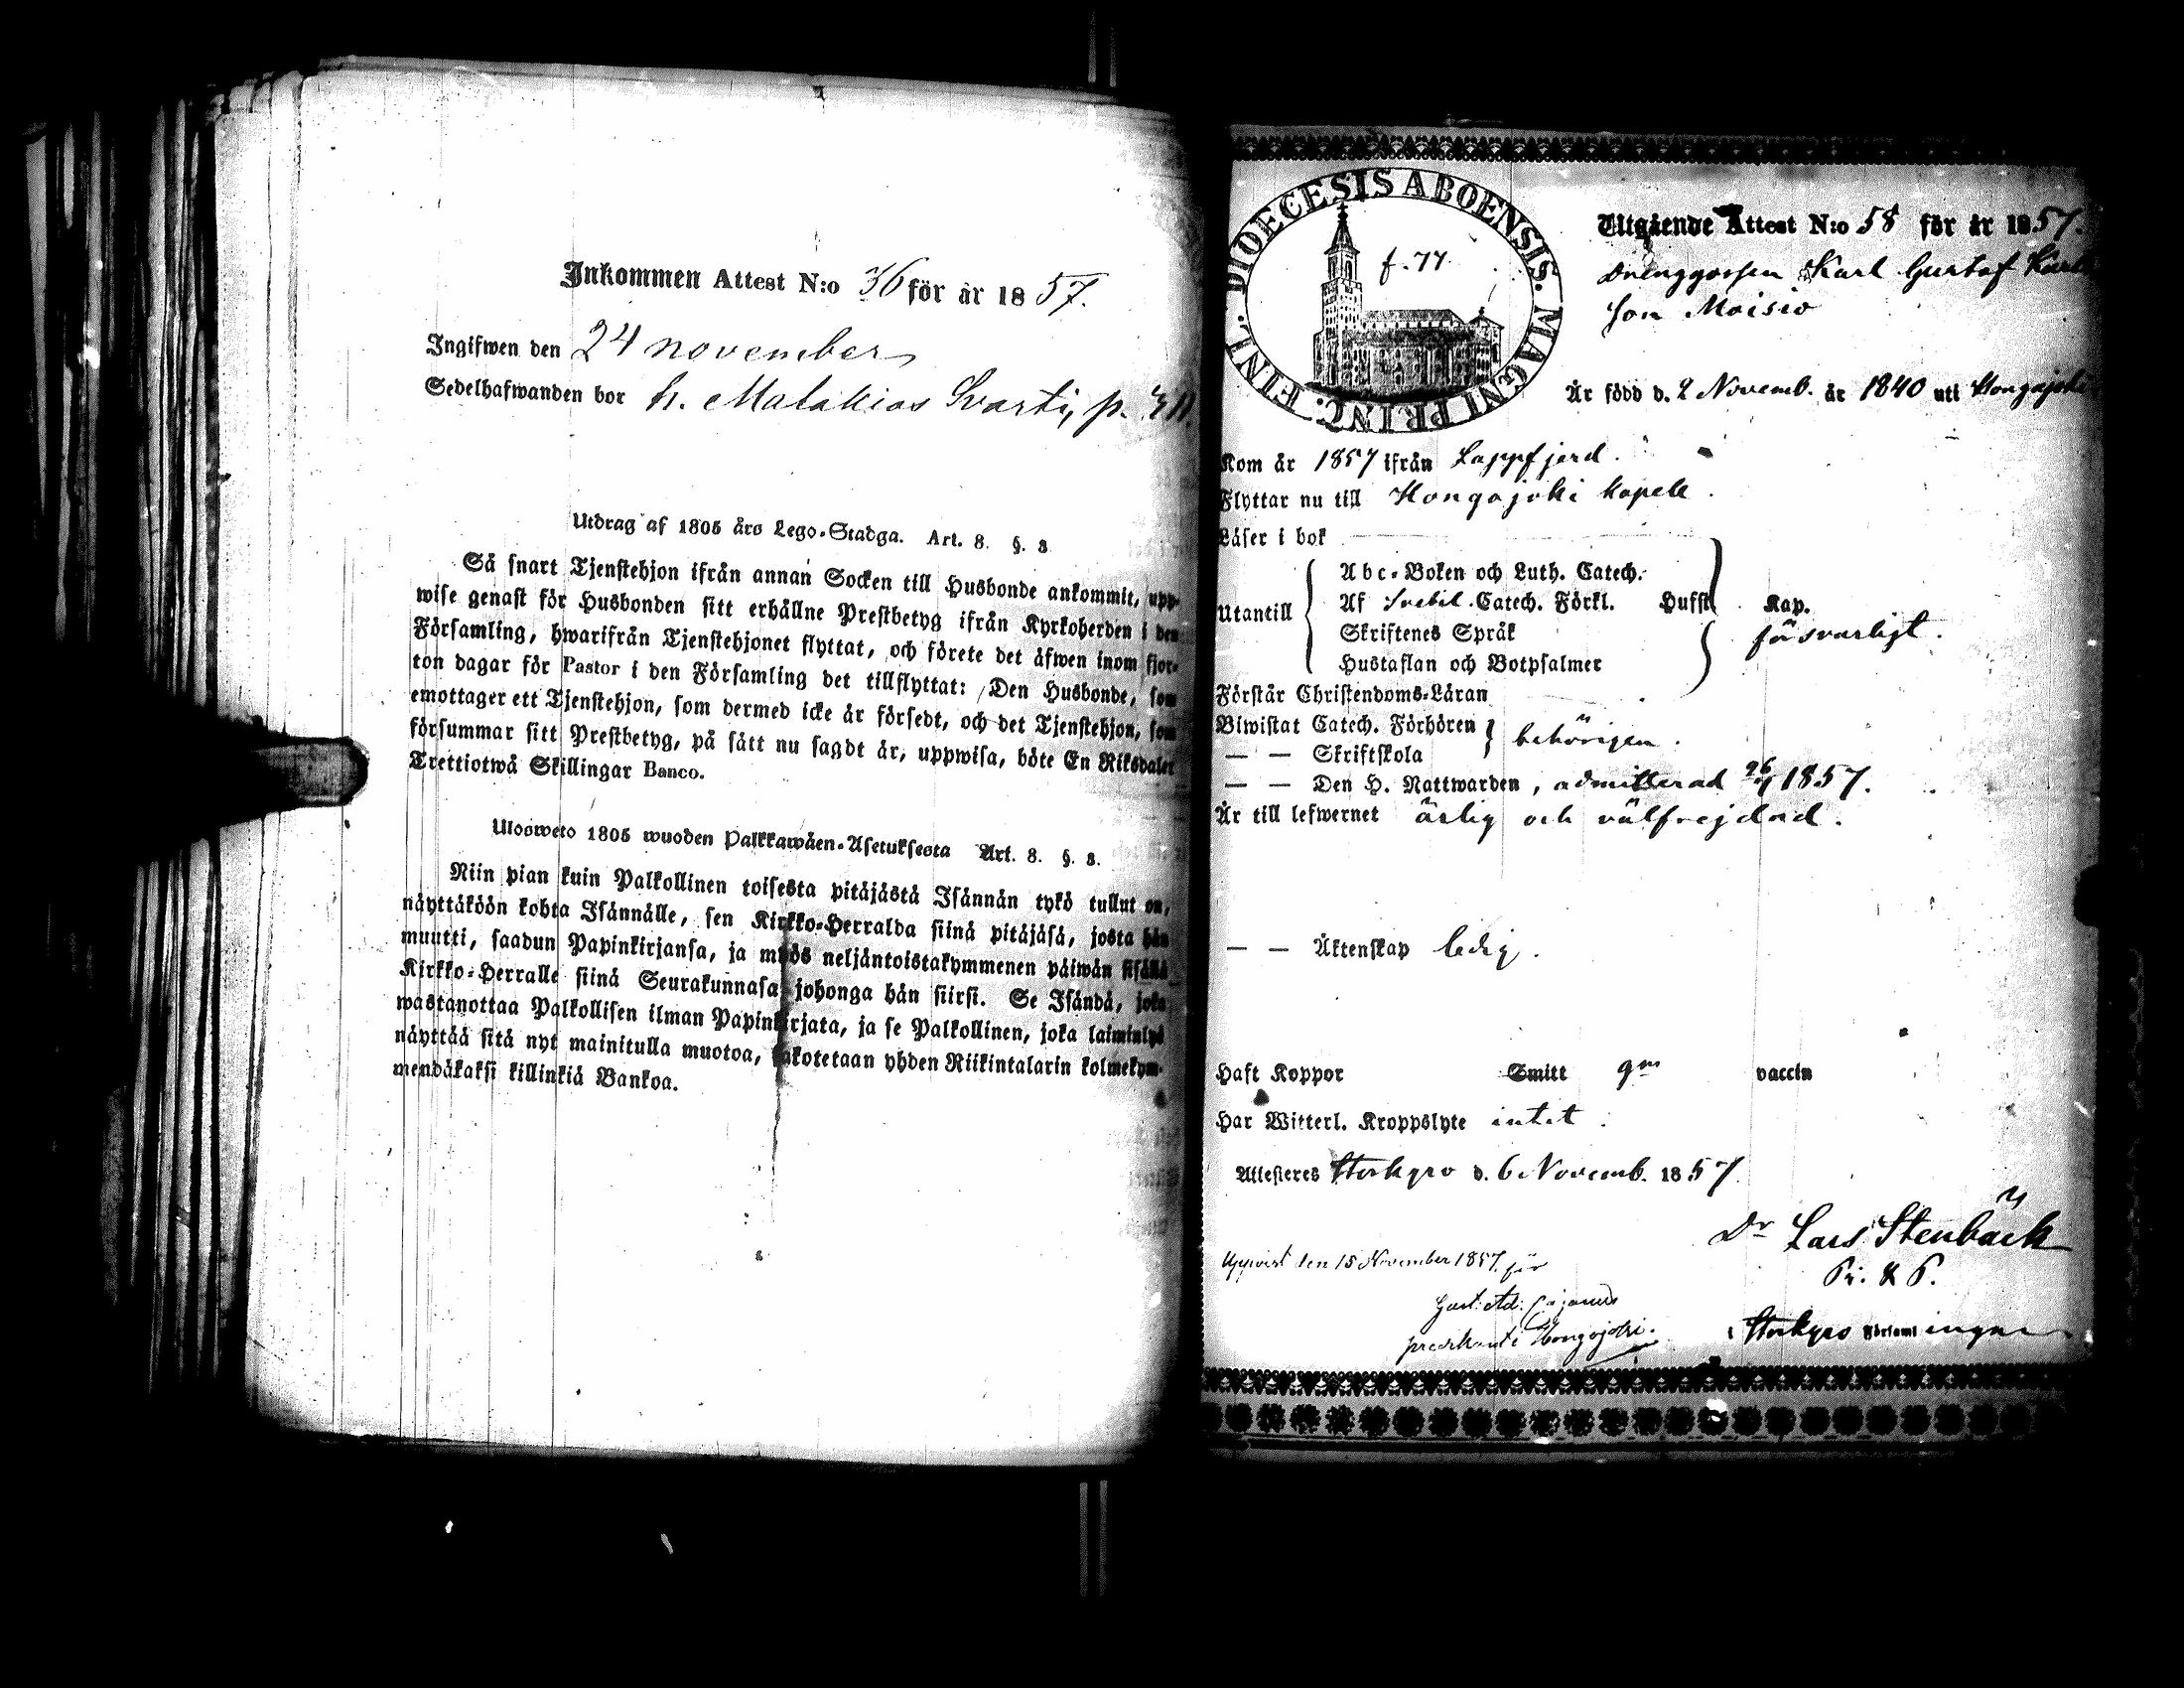 Inkommen Attest N:o 36 för år 1857.
Ingifwen den 24 november
Sedelhafwanden bor h. Malakias Svarti, p.
Utdrag af 1805 års Lego-Stadga. Art. 8. §. 3
Så snart Tjenstehjon ifrån annan Socken till Husbonde ankommit, upp-
wise genast för Husbonden sitt erhållne Prestbetyg ifrån Kyrkoherden i den
Församling, hwarifrån Tjenstehjonet flyttat, och förete det äfwen inom fjor-
ton dagar för Pastor i den Församling det tillflyttat: Den Husbonde, som
emottager ett Tjenstehjon, som dermed icke är försedt, och det Tjenstehjon, som
försummar sitt Prestbetyg, på sätt nu sagdt är, uppwisa, böte En Riksdaler
Trettiotwå Skillingar Banco.
Ulosweto 1805 wuoden Palkkawäen-Asetuksesta Art. 8. §. 3.
Niin pian kuin Palkollinen toisesta pitäjästä Isännän tykö tullut on,
näyttäköön kohta Isännälle, sen Kirkko-Herralda siinä pitäjäsä, josta hän
muutti, saadun Papinkirjansa, ja myös neljäntoistakymmenen päiwän sisällä
Kirkko-Herralle siinä Seurakunnasa johonga hän siirsi. Se Isändä, joka
wastanottaa Palkollisen ilman Papinkirjata, ja se Palkollinen, joka laiminlyö
näyttää sitä nyt mainitulla muotoa, sakotetaan yhden Riikintalarin kolmekym-
mendäkaksi killinkiä Bankoa.
DIOECESIS ABOENSIS. MAGNI PRINC. FINL.
f. 77.
Utgående Attest N:o 58 för år 1857.
Drenggossen Karl Gustaf Karls
son Moisio
Är född d. 2 Novemb. år 1840 uti Hongojoki
Kom år 1857 ifrån Lappfjerd.
Flyttar nu till Hongojoki kapell.
Läser i bok
Utantill
Abc-Boken och Luth. Catech.
Af Svebil. Catech. Förkl. Hufst. Kap.
Skriftenes Språk
Hustaflan och Botpsalmer
försvarligt.
Förstår Christendoms-Läran
Biwistat Catech. Förhören
— — Skriftskola
behörigen.
— — Den H. Nattwarden, admitterad 1857.
Är till lefwernet ärlig och välfrejdad.
— — Äktenskap ledig.
Haft Koppor Smitt gm vaccin
Har Witterl. Kroppslyte intet.
Attesteres Storkyro d. 6 Novemb. 1857.
Dr Lars Stenbäck
Uppvist den 15 November 1857 för
Gust. Ad. Cajanus
predikant i Hongojoki.
i Storkyro Församl ingar